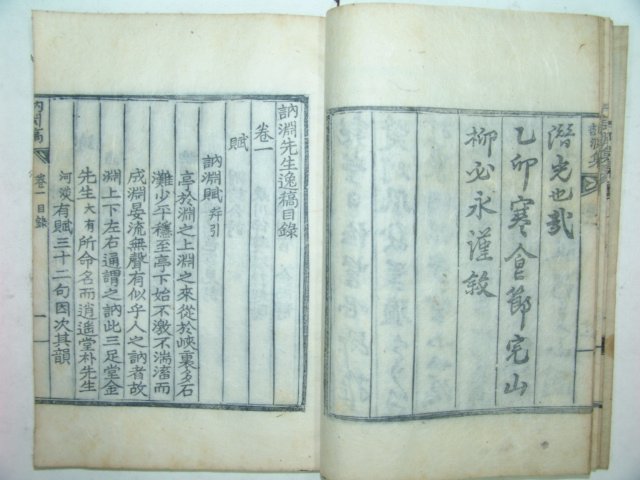 潛光也哉
乙卯寒食節完山
柳必永謹敘
訥淵先生逸稿目錄
卷一
賦
訥淵賦 幷引
亭於淵之上淵之來從於峽裏多石
灘少平穩至亭下始不激不湍渟而
成淵晏流無聲有似乎人之訥者故
淵上下左右通謂之訥此三足堂金
先生大有所命名而逍遥堂朴先生
河淡有賦三十二句因次其韻
訥淵稿
卷一 目錄
一